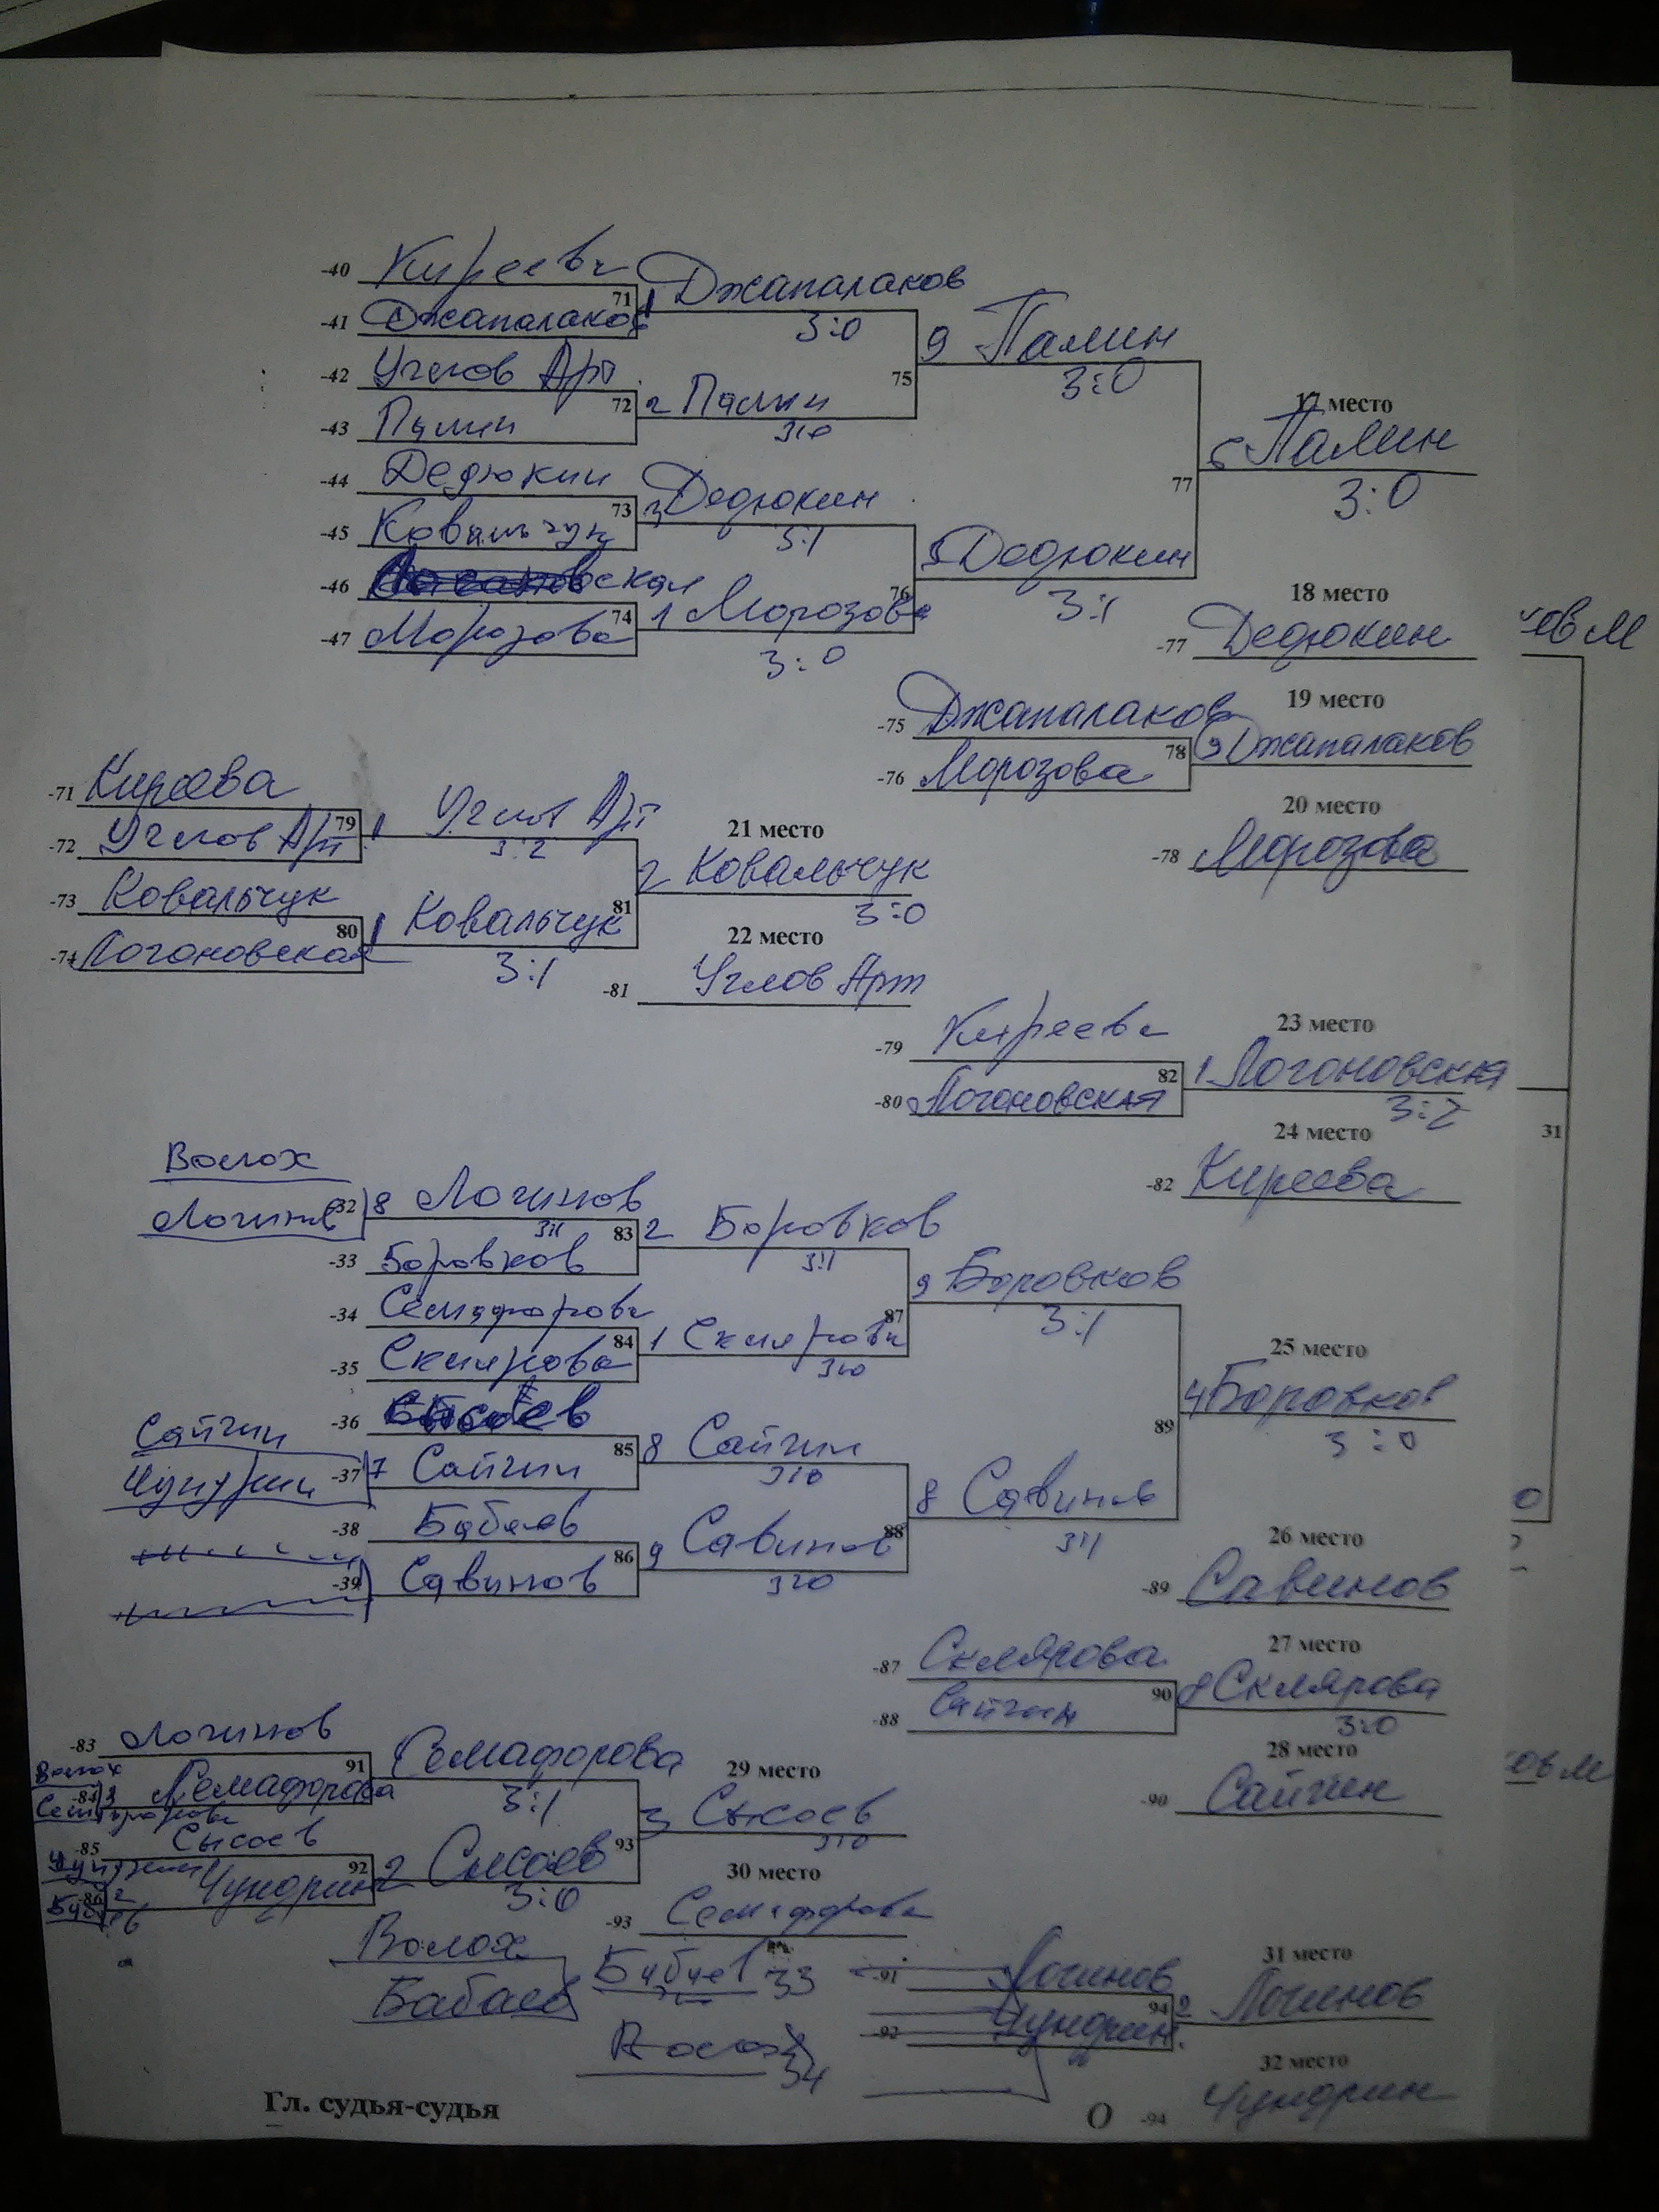 -40 Киреева
71 1 Джапалаков
-41 Джапалаков
3:0
9 Палин
-42 Углов Арт
75 3:0
72 2 Палин
17 место
-43 Палин
3:0
6 Палин
-44 Дедюкин
77 3:0
73 3 Дедюкин
-45 Ковальчук
3:1
5 Дедюкин
-46
76 3:1
18 место
74 1 Морозова
-47 Морозова
-77 Дедюкин
3:0
19 место
-75 Джапалаков
78 9 Джапалаков
-76 Морозова
-71 Киреева
20 место
79 1 Углов Арт
21 место
-72 Углов Арт
3:2
-78 Морозова
2 Ковальчук
-73 Ковальчук
81 3:0
80 1 Ковальчук
22 место
-74 Логоновская
3:1
-81 Углов Арт
23 место
-79 Киреева
82 1 Логоновская
-80 Логоновская
3:2
24 место
31
Волох
-82 Киреева
32 8 Логинов
Логинов
3:1
83 2 Боровков
-33 Боровков
3:1
9 Боровков
-34 Семафорова
87 3:1
84 1 Склярова
25 место
-35 Склярова
3:0
4 Боровков
-36 Сысоев
89 3:0
Сайгин
85 8 Сайгин
Чундрин -37 7 Сайгин
3:0
8 Савинов
-38 Бабаев
88 3:1
26 место
86 9 Савинов
-39 Савинов
3:0
-89 Савинов
27 место
-87 Склярова
90 8 Склярова
-88 Сайгин
3:0
-83 Логинов
28 место
91 Семафорова
29 место
Волох
-84 3 Семафорова
3:1
-90 Сайгин
Семафорова
3 Сысоев
-85 Сысоев
93 3:0
Чундрин
92 2 Сысоев
30 место
-86 2 Чундрин
3:0
Бабаев
-93 Семафорова
31 место
Волох
Бабаев 33
-91 Логинов
94 2 Логинов
Бабаев
-92 Чундрин
Волох 34
32 место
Гл. судья-судья
О -94 Чундрин